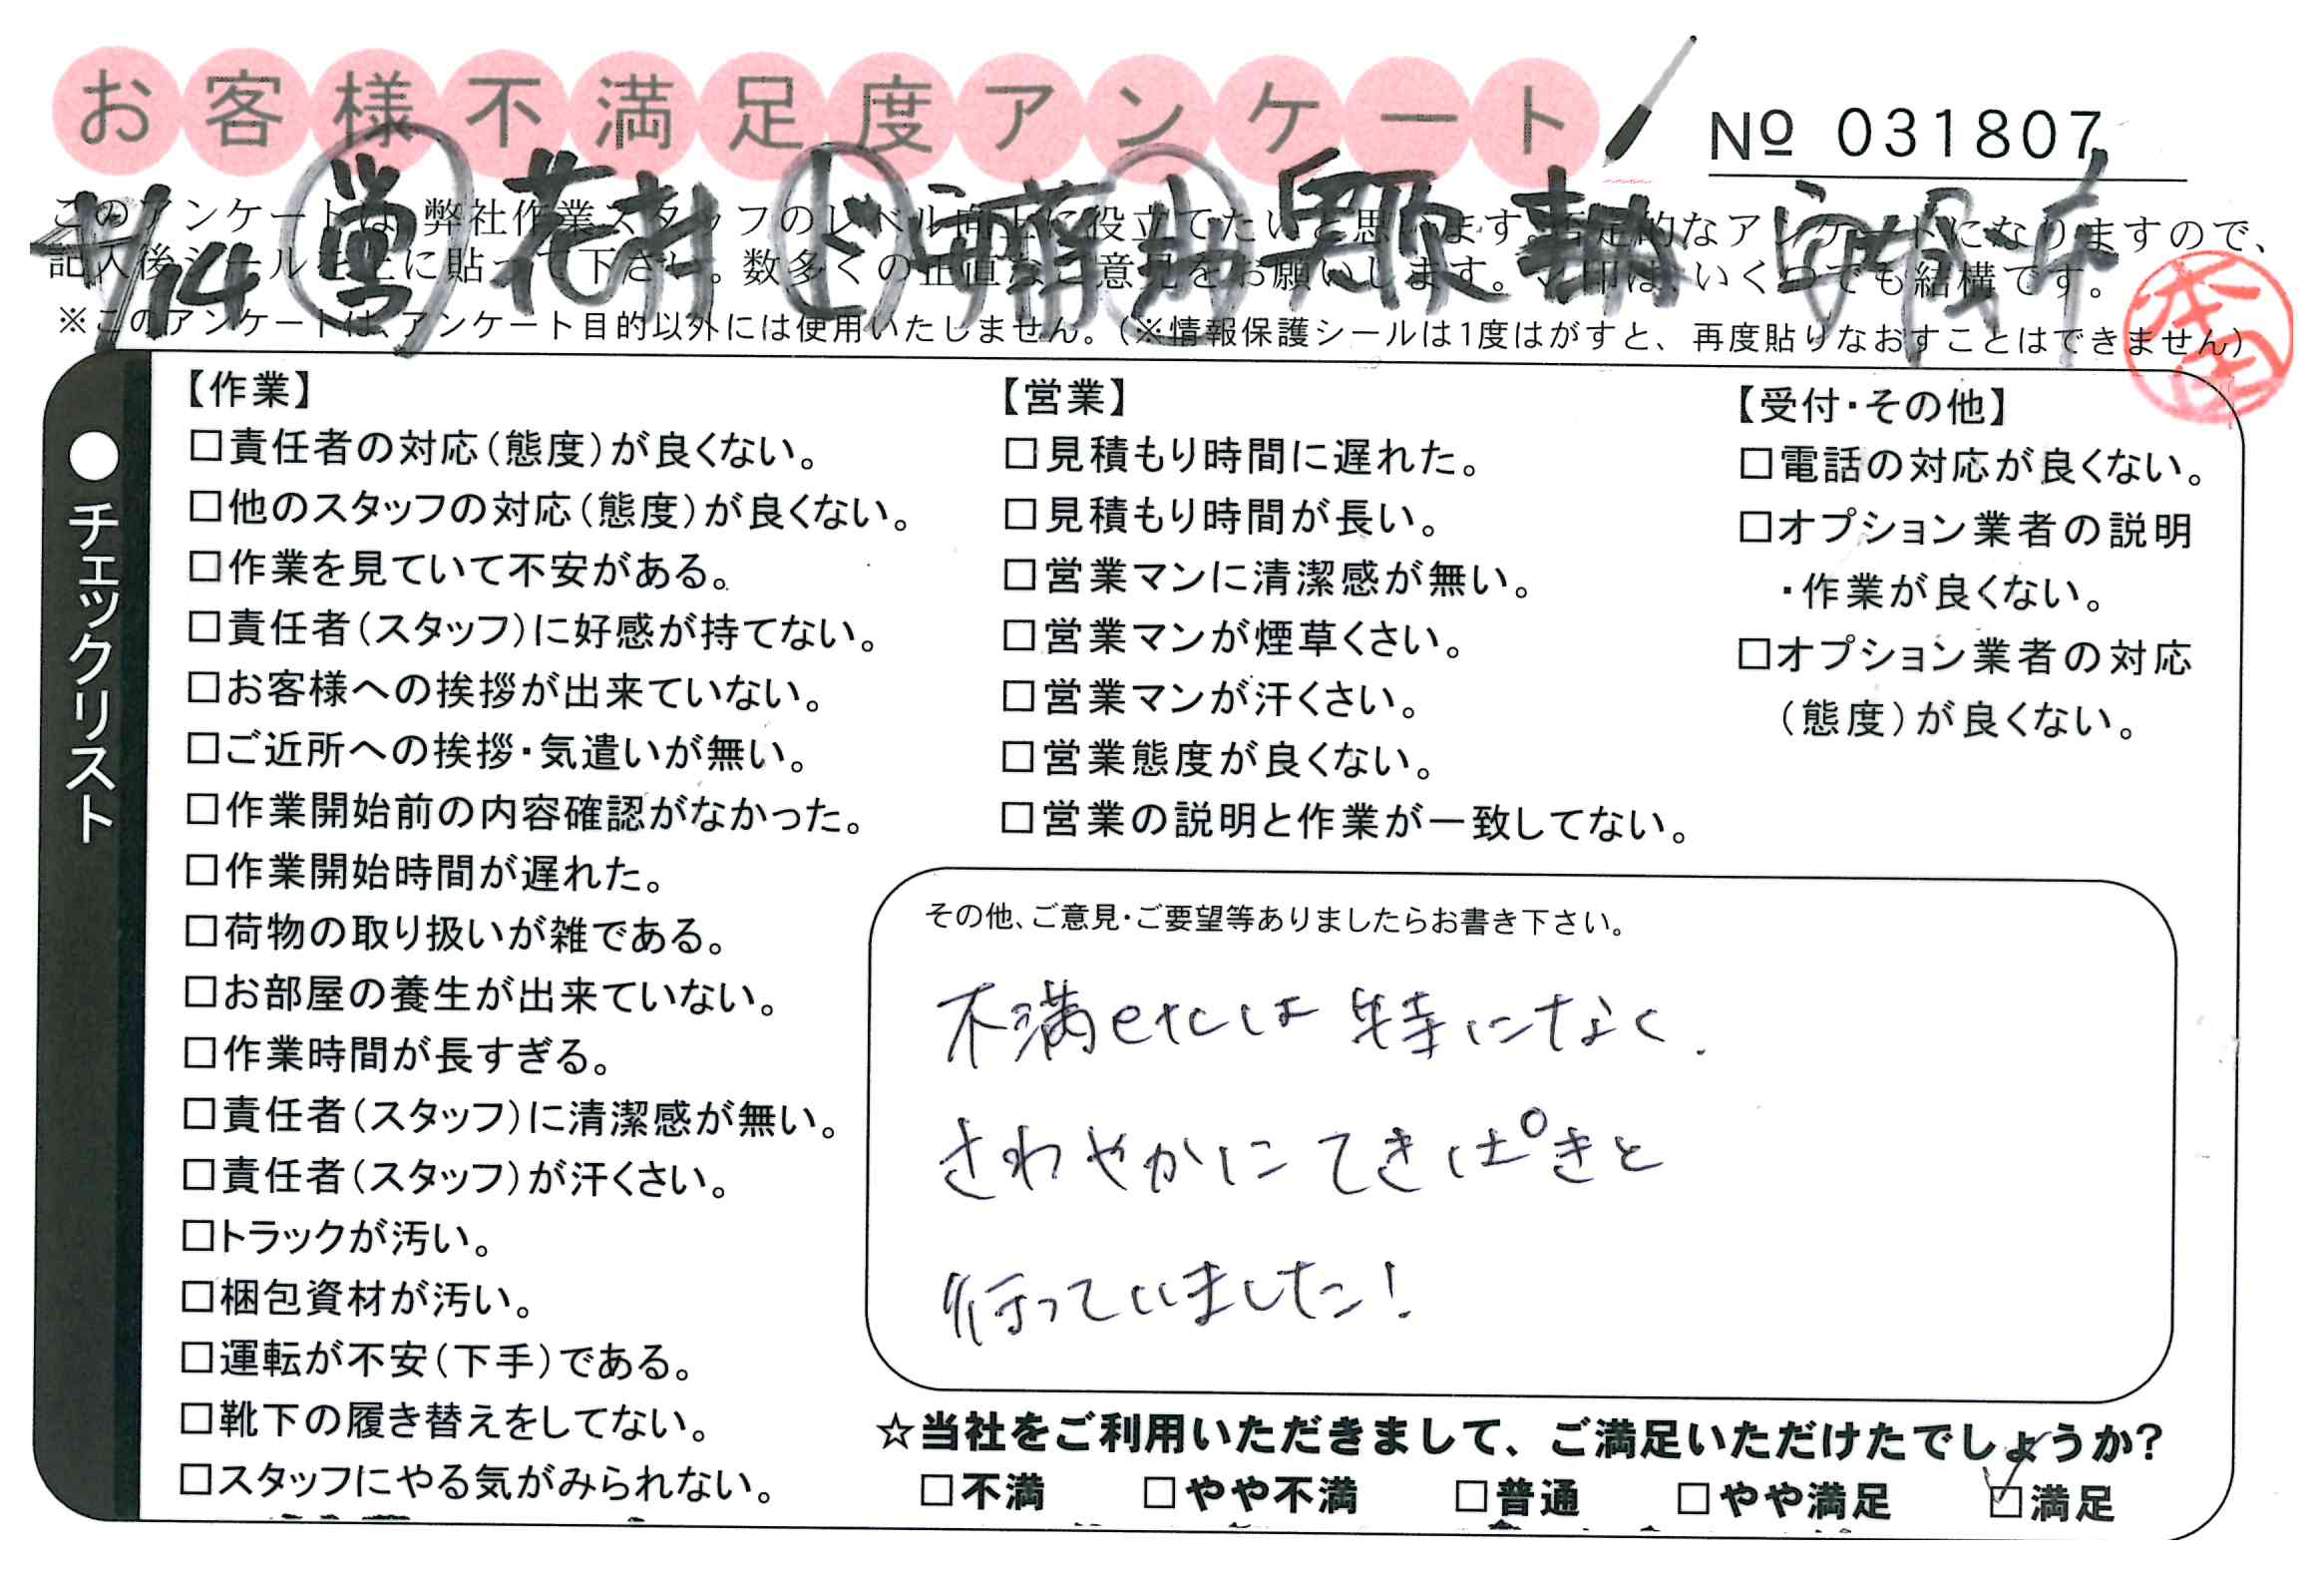 お客様不満足度アンケート
№ 031807
4/14 営 花村 ど 助
このアンケートは、弊社作業スタッフのレベル向上に役立てたいと思います。否定的なアンケートになりますので、
記入後シールを上に貼って下さい。数多くの正直なご意見をお願いします。✓印は、いくつでも結構です。
※このアンケートは、アンケート目的以外には使用いたしません。(※情報保護シールは1度はがすと、再度貼りなおすことはできません)
本田
●チェックリスト
【作業】
□責任者の対応(態度)が良くない。
□他のスタッフの対応(態度)が良くない。
□作業を見ていて不安がある。
□責任者(スタッフ)に好感が持てない。
□お客様への挨拶が出来ていない。
□ご近所への挨拶・気遣いが無い。
□作業開始前の内容確認がなかった。
□作業開始時間が遅れた。
□荷物の取り扱いが雑である。
□お部屋の養生が出来ていない。
□作業時間が長すぎる。
□責任者(スタッフ)に清潔感が無い。
□責任者(スタッフ)が汗くさい。
□トラックが汚い。
□梱包資材が汚い。
□運転が不安(下手)である。
□靴下の履き替えをしてない。
□スタッフにやる気がみられない。
【営業】
□見積もり時間に遅れた。
□見積もり時間が長い。
□営業マンに清潔感が無い。
□営業マンが煙草くさい。
□営業マンが汗くさい。
□営業態度が良くない。
□営業の説明と作業が一致してない。
【受付・その他】
□電話の対応が良くない。
□オプション業者の説明
・作業が良くない。
□オプション業者の対応
(態度)が良くない。
その他、ご意見・ご要望等ありましたらお書き下さい。
不満etcは特になく.
さわやかにてきぱきと
行っていました!
☆当社をご利用いただきまして、ご満足いただけたでしょうか?
□不満 □やや不満 □普通 □やや満足 ☑満足